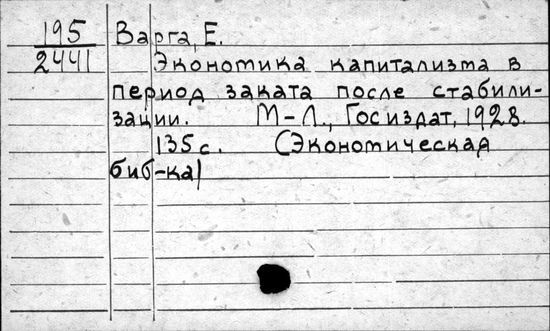 195
2441
Варга, Е.
Экономика капитализма в
период заката после стабили-
зации. М-Л., Госиздат, 1928.
135 с. (Экономическая
биб-ка)